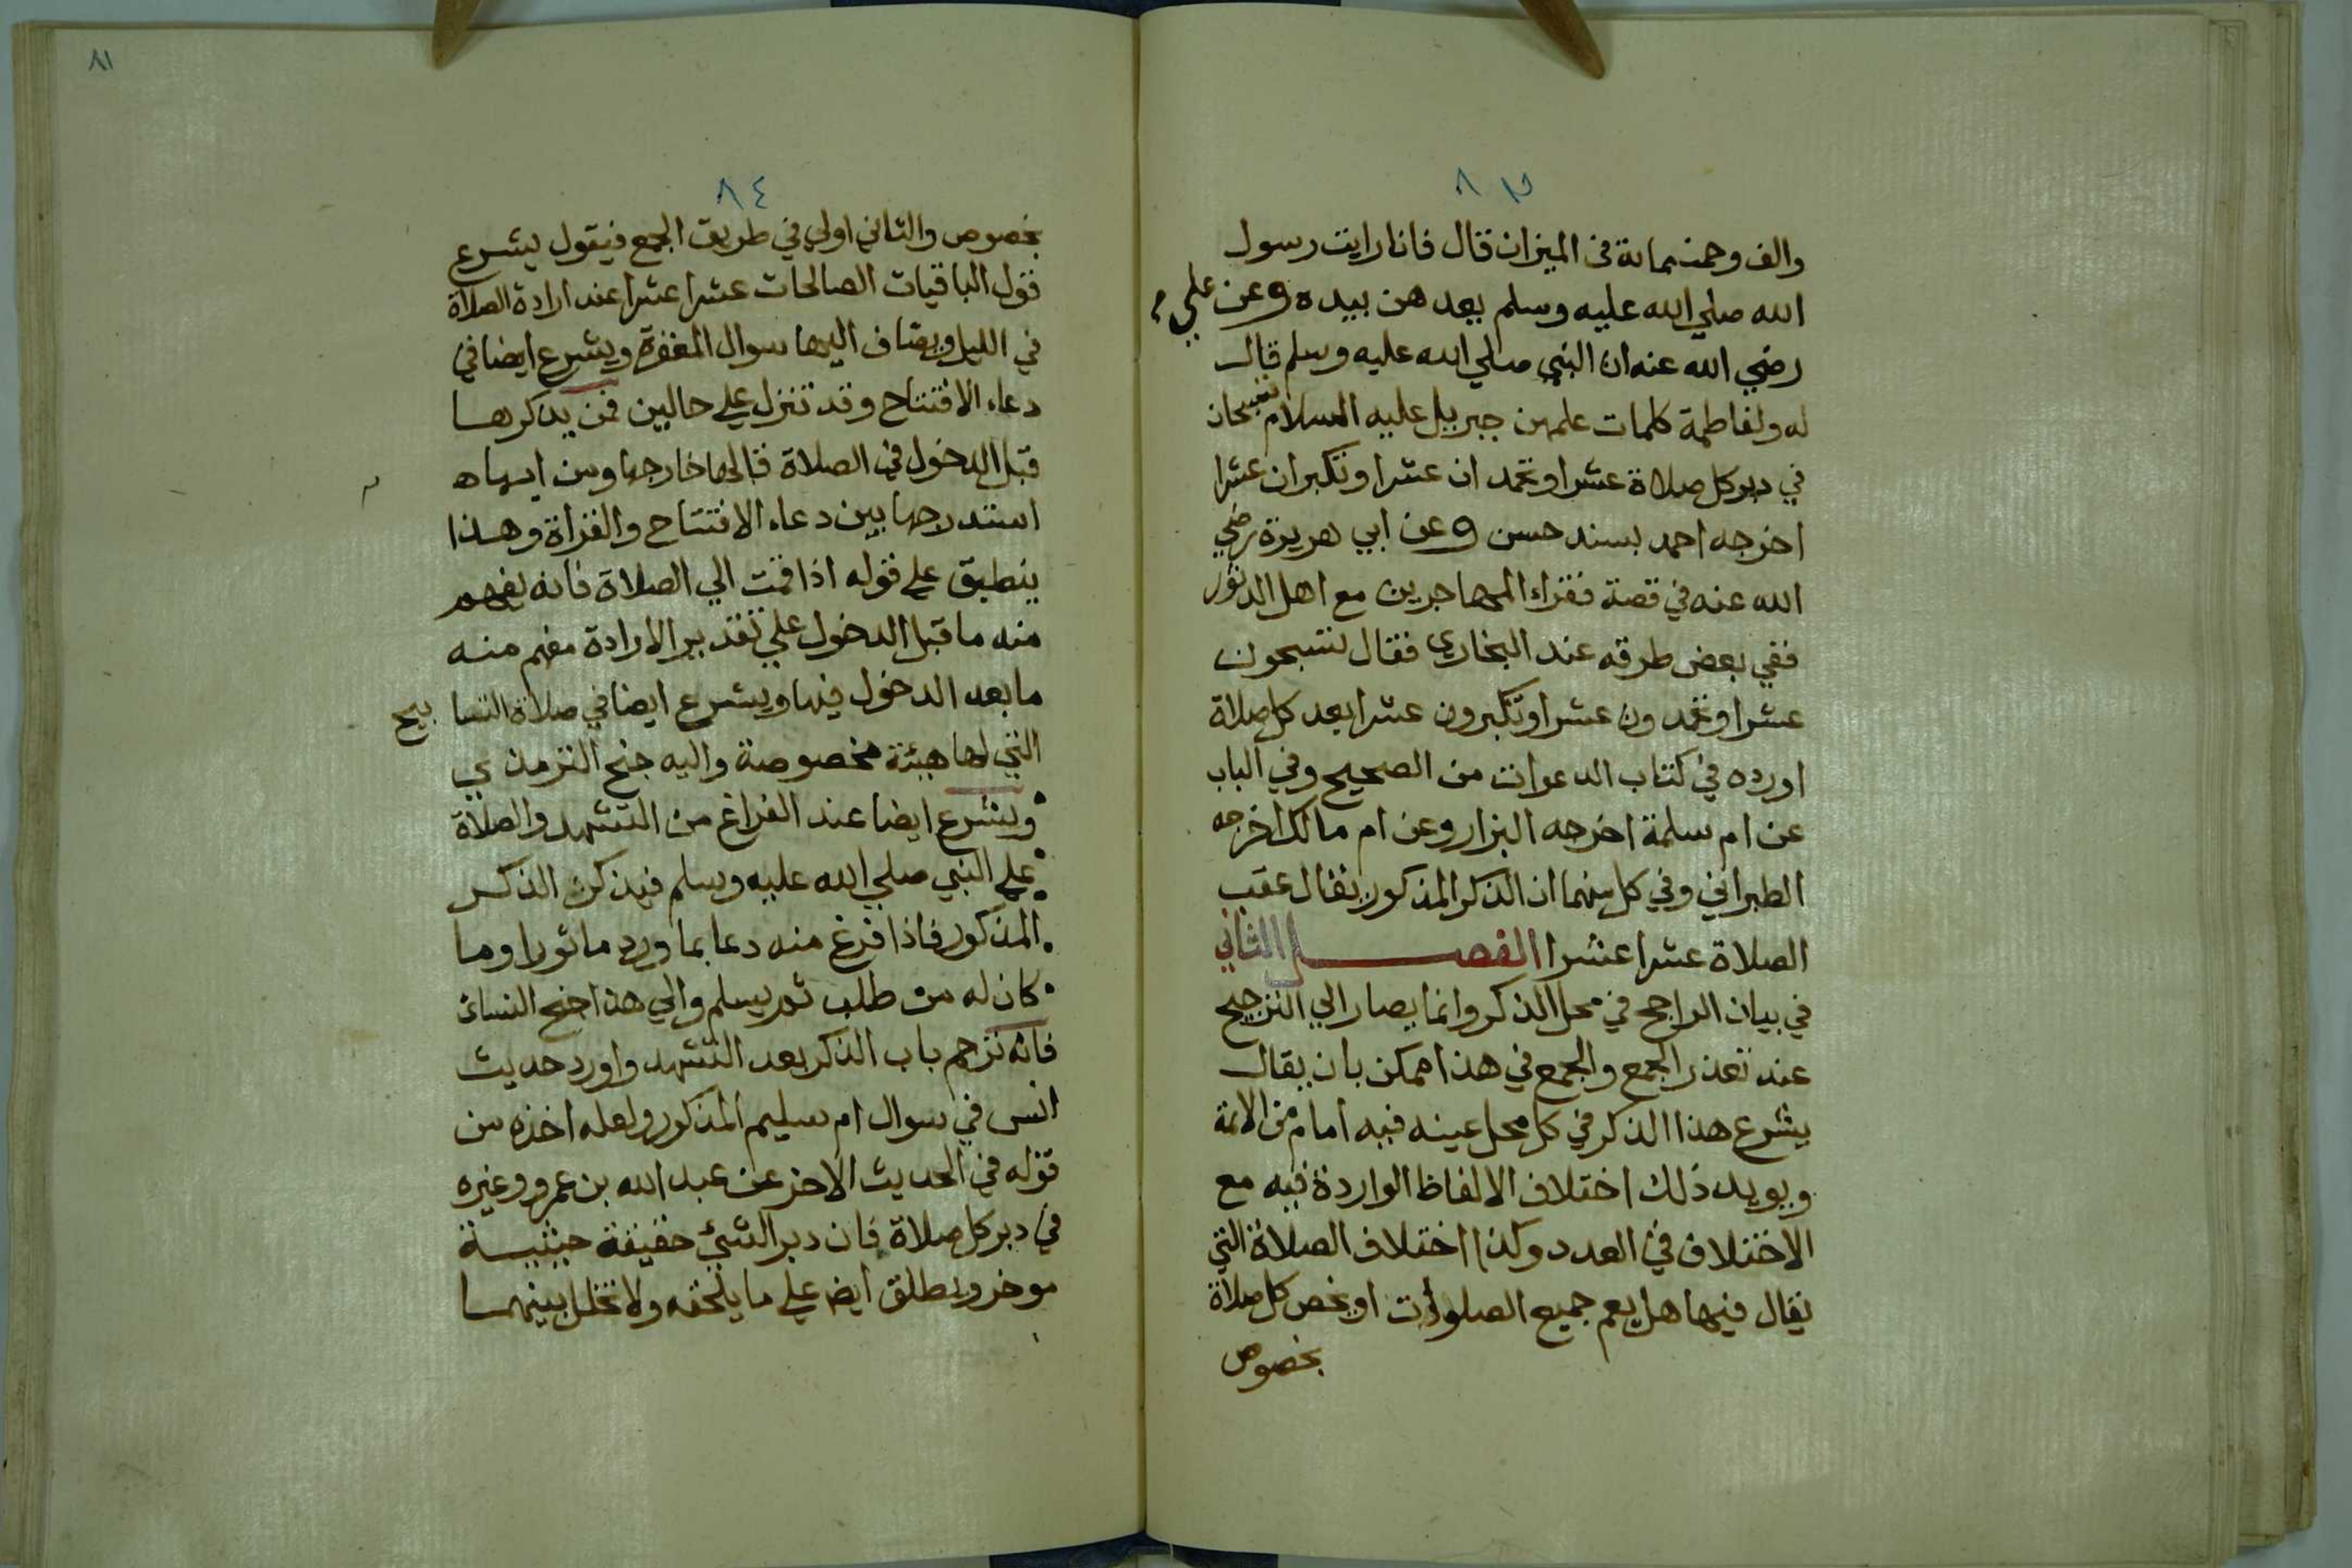 ٨٣
والف وخمسماية في الميزان قال فانا رايت رسول
الله صلي الله عليه وسلم يعدهن بيده وعن علي
رضي الله عنه ان النبي صلي الله عليه وسلم قال
له ولفاطمة كلمات علمهن جبريل عليه السلام تسبحان
في دبر كل صلاة عشرا وتحمدان عشرا وتكبران عشرا
اخرجه احمد بسند حسن وعن ابي هريرة رضي
الله عنه في قصة فقراء المهاجرين مع اهل الدثور
ففي بعض طرقه عند البخاري فقال تسبحون
عشرا وتحمدون عشرا وتكبرون عشرا بعد كل صلاة
اورده في كتاب الدعوات من الصحيح وفي الباب
عن ام سلمة اخرجه البزار وعن ام مالك اخرجه
الطبراني وفي كل منهما ان الذكر المذكور يقال عقب
الصلاة عشرا عشرا الفصل الثاني
في بيان الراجح في محل الذكر وانما يصار الي الترجيح
عند تعذر الجمع والجمع في هذا ممكن بان يقال
يشرع هذا الذكر في كل محل عينه فيه امام من الائمة
ويويد ذلك اختلاف الالفاظ الواردة فيه مع
الاختلاف في العدد وكذا اختلاف الصلاة التي
يقال فيها هل يعم جميع الصلوات او يخص كل صلاة
بخصوص
٨١
٨٤
بخصوص والثاني اولي في طريق الجمع فيقول يشرع
قول الباقيات الصالحات عشرا عشرا عند ارادة الصلاة
في الليل ويضاف اليها سوال المغفرة ويشرع ايضا في
دعاء الافتتاح وقد تنزل علي حالين فمن يذكرها
قبل الدخول في الصلاة قالها خارجها ومن
استدرجها بين دعاء الافتتاح والقراة وهذا
ينطبق علي قوله اذا قمت الي الصلاة فانه يفهم
منه ما قبل الدخول علي تقدير الارادة مفهم منه
ما بعد الدخول فيها ويشرع ايضا في صلاة التسابيح
التي لها هيئة مخصوصة واليه جنح الترمذي
ويشرع ايضا عند الفراغ من التشهد والصلاة
علي النبي صلي الله عليه وسلم فيذكر الذكر
المذكور فاذا فرغ منه دعا بما ورد ماثورا وما
كان له من طلب ثم يسلم والي هذا جنح النسائ
فانه ترجم باب الذكر بعد التشهد واورد حديث
انس في سوال ام سليم المذكور ولعله اخذه من
قوله في الحديث الاخر عن عبد الله بن عمرو وغيره
في دبر كل صلاة فان دبر الشئ حقيقة
موخر ويطلق ايض علي ما يلحقه ولا تخلل بينهما